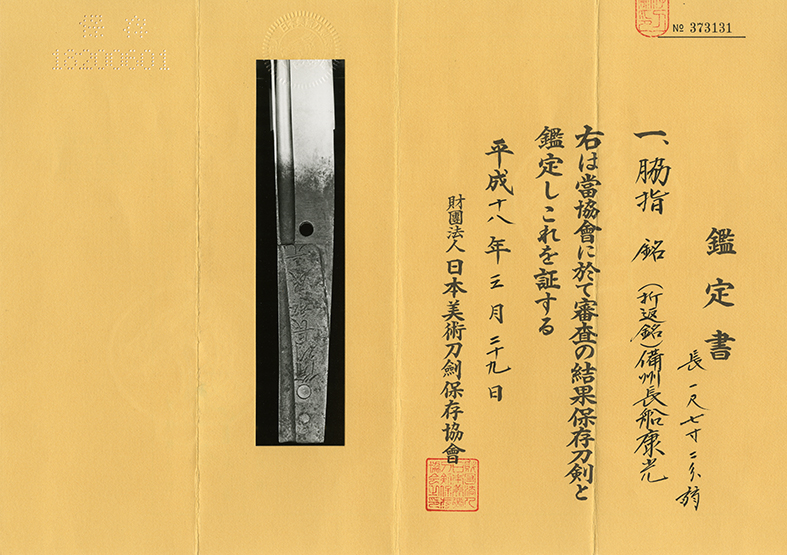 No 373131
鑑定書
一、脇指 銘(折返銘)備州長船康光
長一尺七寸二分弱
右は當協會に於て審査の結果保存刀剣と
鑑定しこれを証する
平成十八年三月二十九日
財團法人日本美術刀劍保存協會
保存
18200601